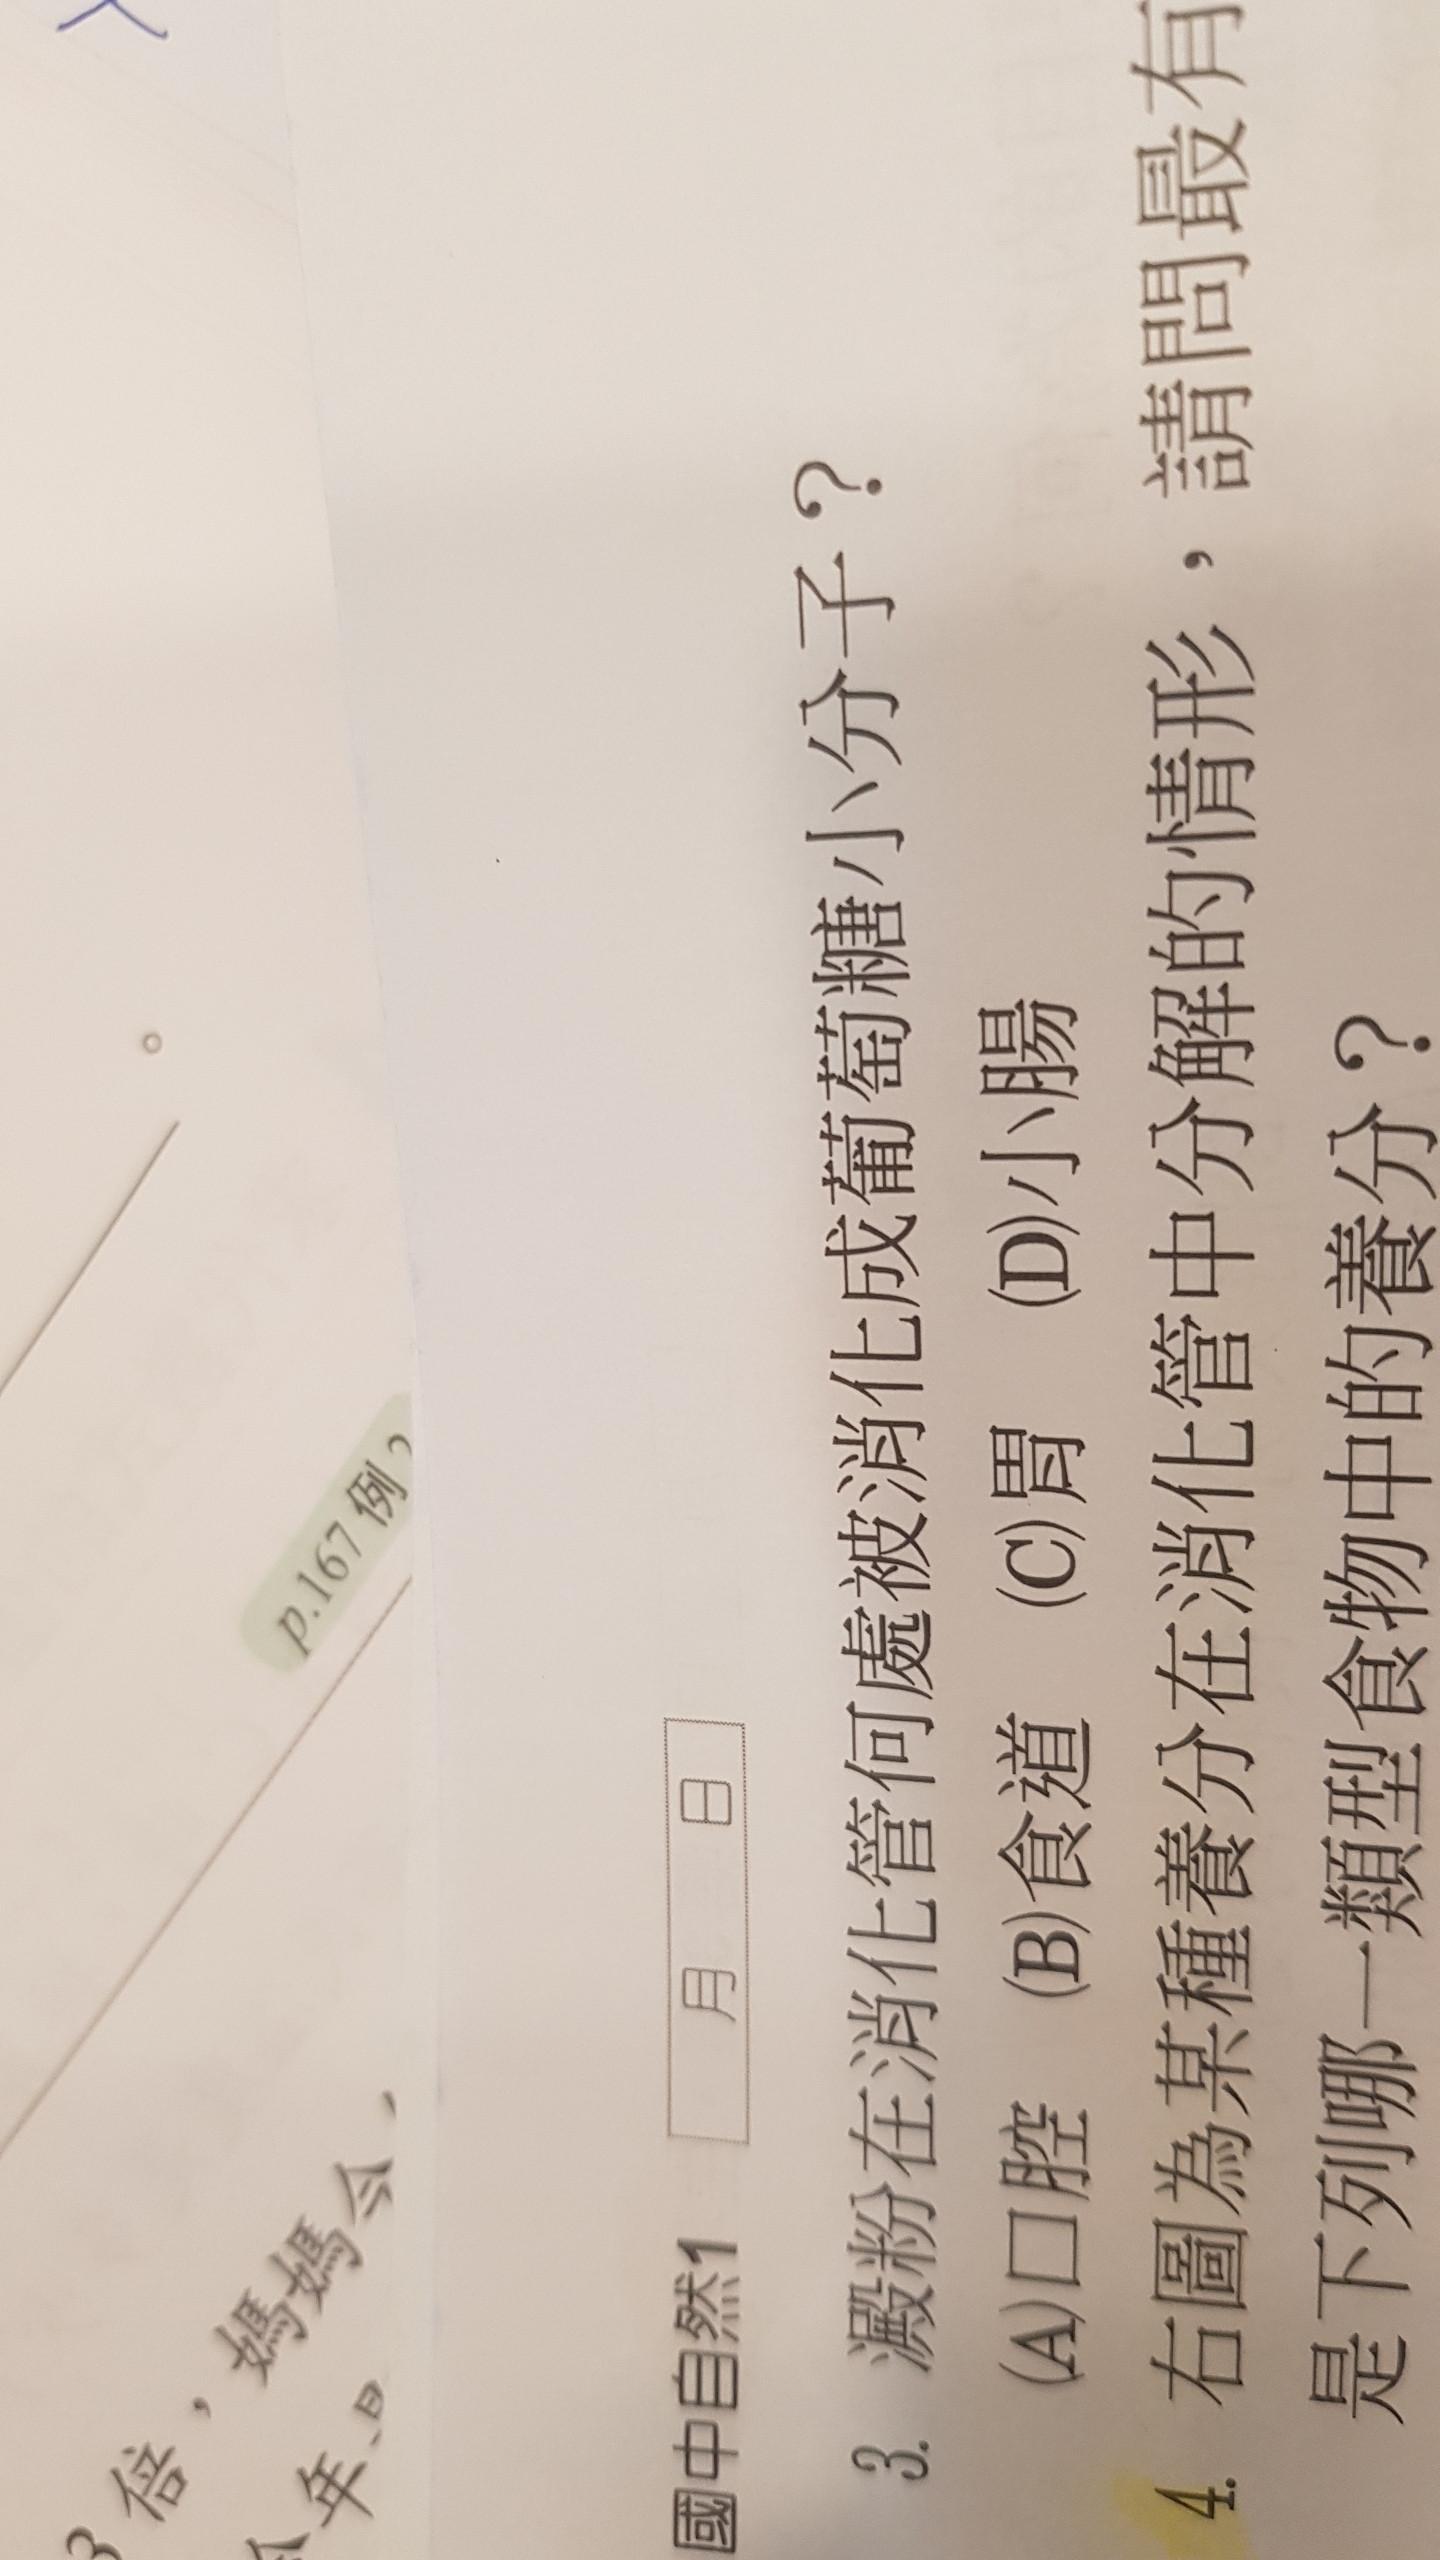 3 倍，媽媽今
年
p.167 例 2
國中自然1 月 日
3. 澱粉在消化管何處被消化成葡萄糖小分子？
(A)口腔 (B)食道 (C)胃 (D)小腸
4. 右圖為某種養分在消化管中分解的情形，請問最有
是下列哪一類型食物中的養分？